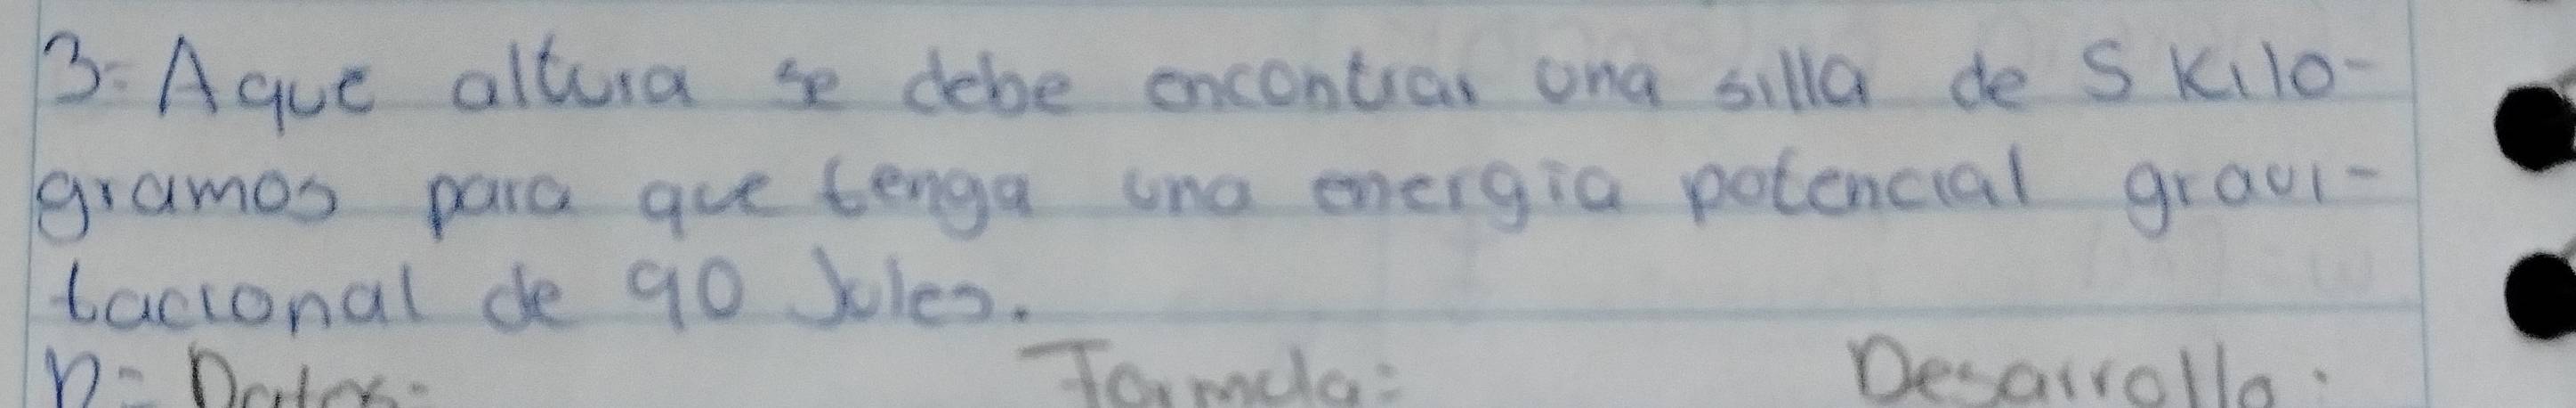 3= A que altura se debe encontrar una silla de 5 Kilo-
gramos para que tenga una energia potencial gravi-
tacional de 90 Jules.
D= Datos= Formula= Desarrollo: